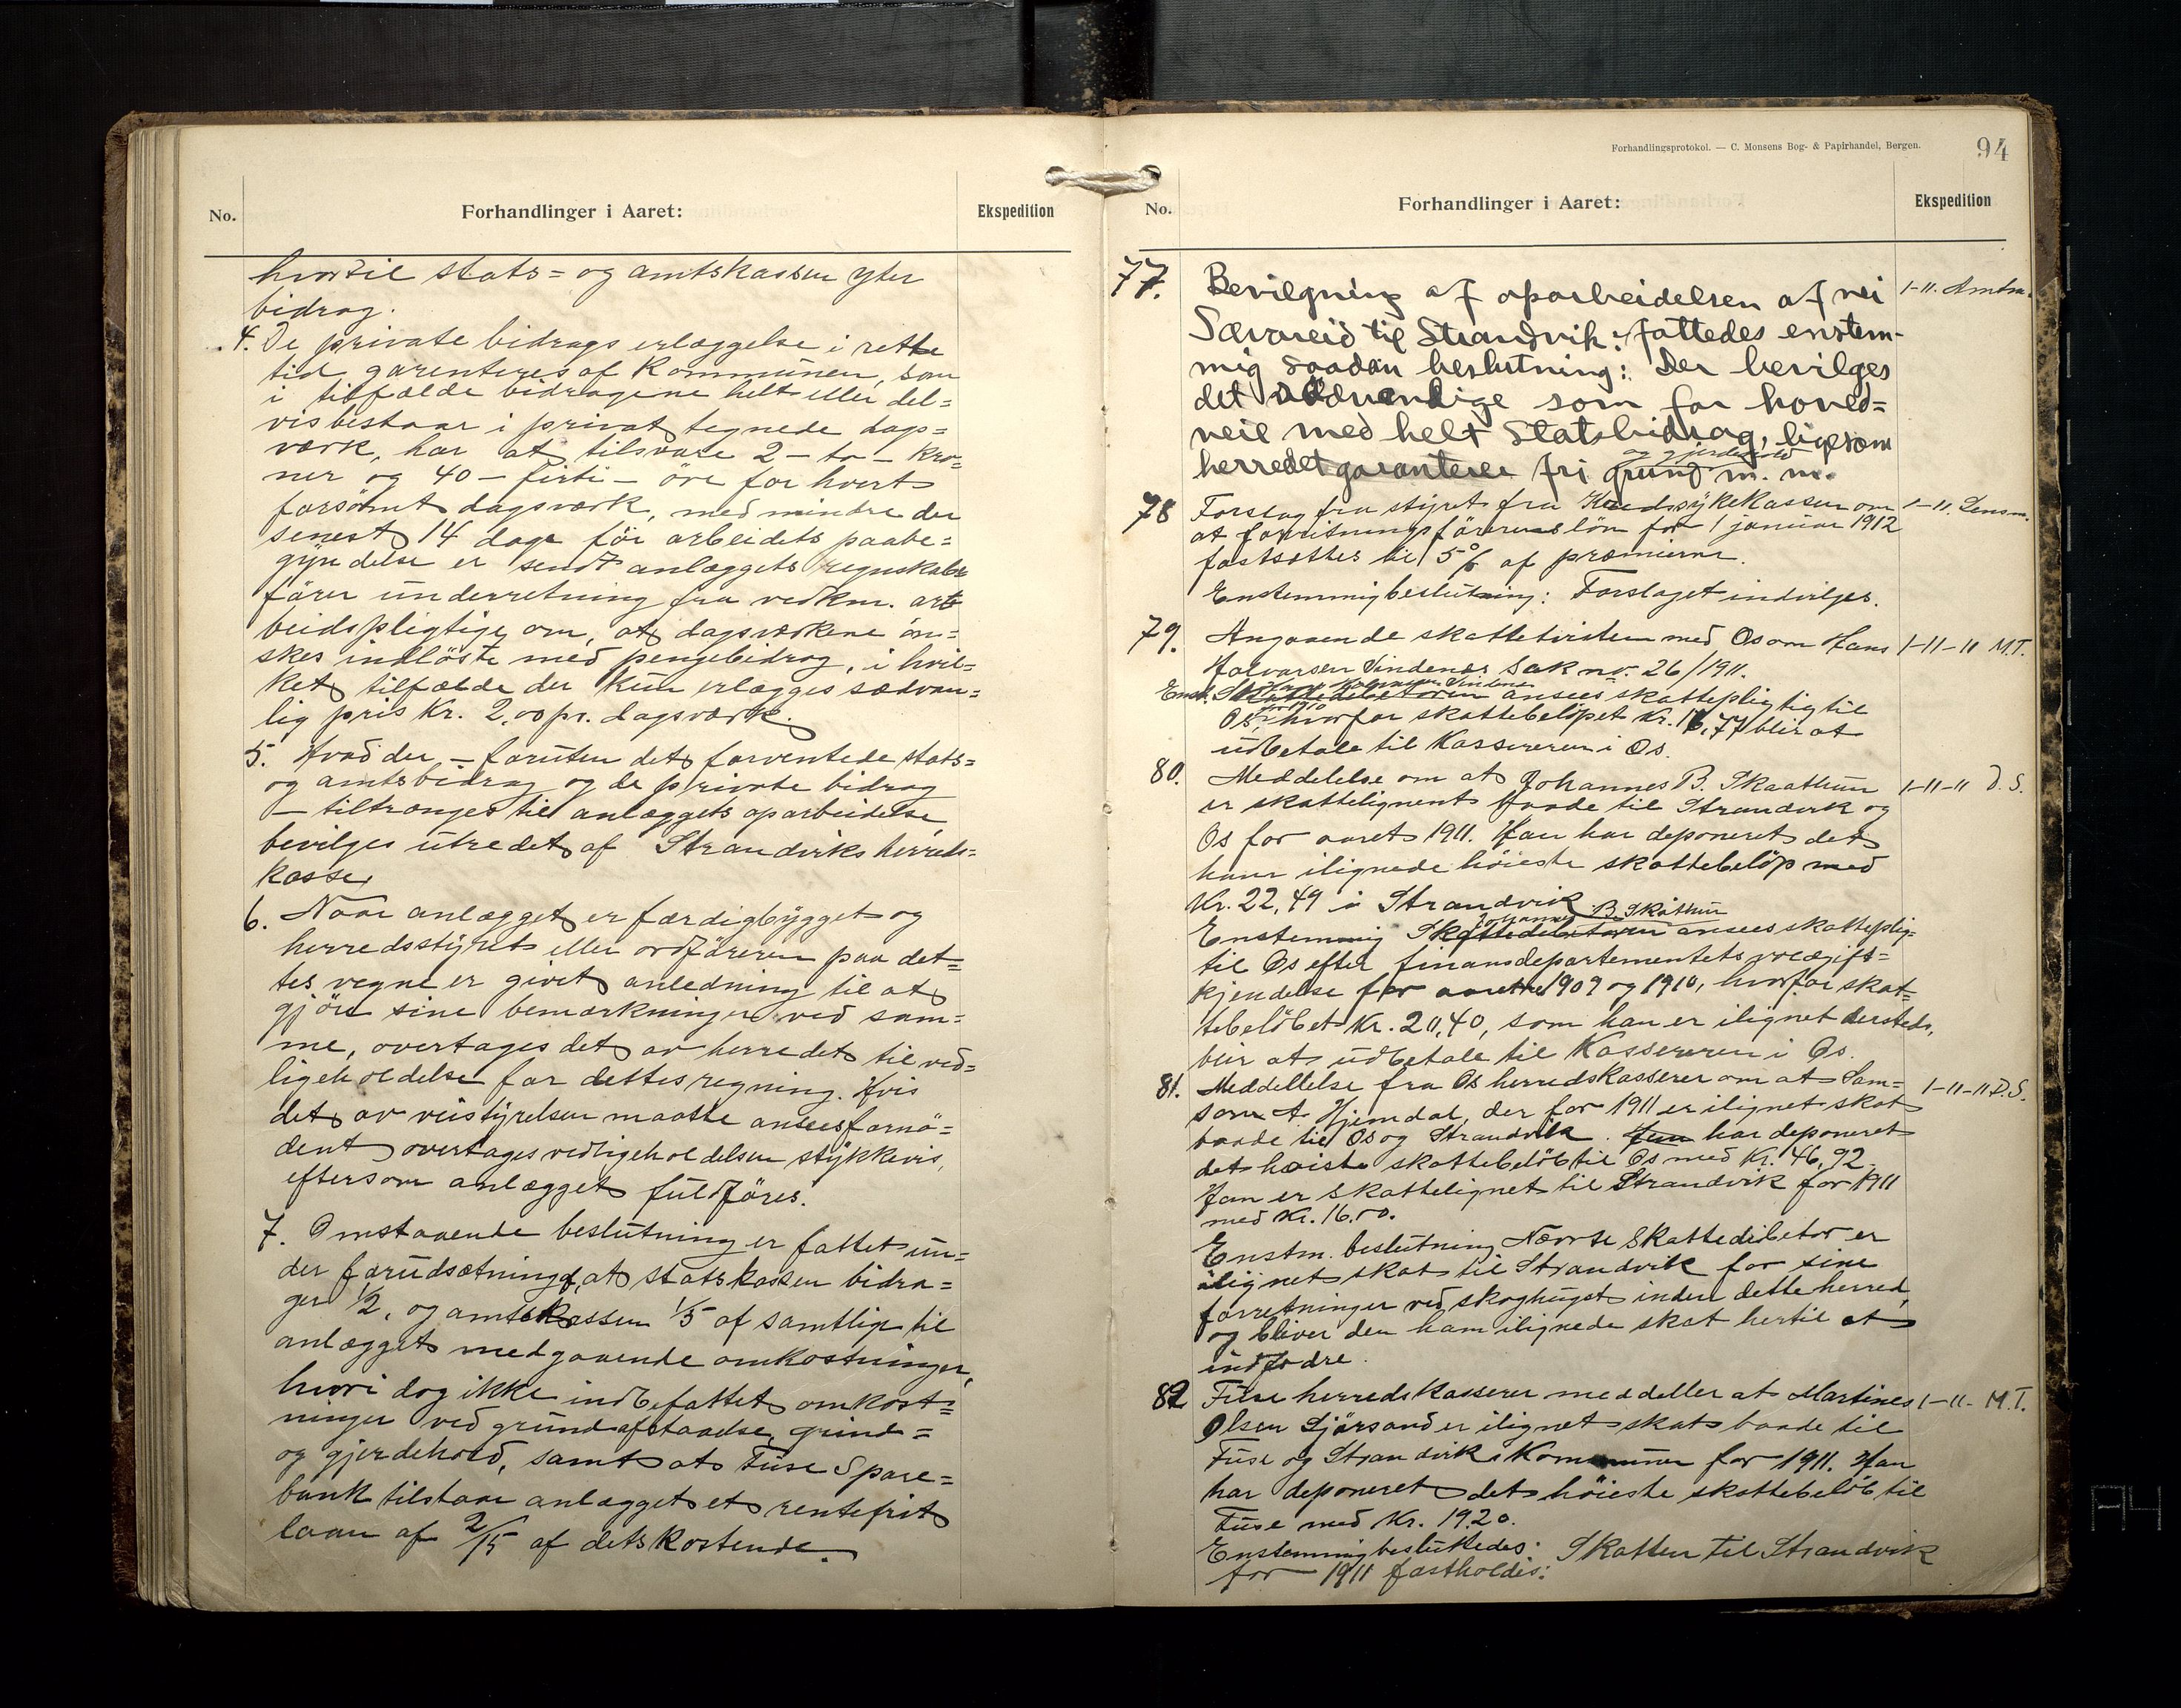 No.
Forhandlinger i Aaret:
Ekspedition
hvortil stats= og amtskassen yter
bidrag.
4. De private bidrags erlæggelse i rette
tid garenteres af Kommunen, som
i tilfælde bidragene helt eller del=
vis bestaar i privat tegnede dags=
værk, har at tilsvare 2 – to – kro=
ner og 40 – firti – öre for hvert
forsömt dagsværk, med mindre der
senest 14 dage för arbeidets paabe=
gyndelse er sendt anlæggets regnskabs
förer underretning fra vedkm. ar
beidspligtige om, at dagsværkene ön=
skes indlöste med pengebidrag, i hvil=
ket tilfælde der kun erlægges sædvan=
lig pris Kr. 2,00 pr. dagsværk.
5. Hvad der – foruten det forventede stats=
og amtsbidrag og de private bidrag
– tiltrænges til anlæggets oparbeidelse
bevilges utredet af Strandviks herreds=
kasse.
6. Naar anlægget er færdigbygget og
herredsstyret eller ordföreren paa det=
tes vegne er givet anledning til at
gjöre sine bemærkninger ved sam=
me, overtages det av herredet til ved=
ligeholdelse for dettes regning. Hvis
det av veistyrelsen maatte ansees fornö=
dent overtages vedligeholdelsen stykkevis,
eftersom anlægget fuldföres.
7. Omstaaende beslutning er fattet un=
der forudsætning af, at statskassen bidra=
ger 1/2, og amtskassen 1/5 af samtlige til
anlægget medgaaende omkostninger,
hvori dog ikke indbefattet omkost=
ninger ved grundafstaaelse, grind=
og gjerdehold, samt at Fuse Spare=
bank tilstaar anlægget et rentefrit
laan af 2/15 af dets kostende.
Forhandlingsprotokol. — C. Monsens Bog- & Papirhandel, Bergen.
94
No.
Forhandlinger i Aaret:
Ekspedition
77. Bevilgning af oparbeidelsen af vei 1-11. Amtm.
Sævareid til Strandvik: fattedes enstem-
mig saadan beslutning: Der bevilges
det nödvendige som for hoved=
veie med helt Statsbidrag, ligesom
og gjerdehold
herredet garanterer fri grund m. m.
78 Forslag fra styret fra Kredssykekassen om 1-11. Lensm.
at forretningsförerens lön for 1 januar 1912
fastsættes til 5 % af præmierne.
Enstemmig beslutning: Forslaget indvilges.
79. Angaaende skattetvisten med Os om Hans 1-11-11 M.T.
Halvorsen Sindenes Sak no. 26/1911.
Hans Halvorsen Sindenes
Enst. Skattedebetoren ansees skattepligtig til
for 1910
Os, hvorfor skattebelöpet Kr. 16,77 blir at
udbetale til Kassereren i Os.
80. Meddelelse om at Johannes B. Skaathun 1-11-11 D.S.
er skattelignent baade til Strandvik og
Os for aaret 1911. Han har deponeret det
ham ilignede höieste skattebelöp med
Kr. 22,49 i Strandvik.
Johannes B. Skåthun
Enstemmig Skattedebetoren ansees skatteplig=
til Os efter finansdepartementets voldgifts=
kjendelse for aarene 1909 og 1910, hvorfor skat=
tebelöbet Kr. 20,40, som han er ilignet dersteds,
blir at udbetale til Kassereren i Os.
81. Meddellelse fra Os herredskasserer om at Sam= 1-11-11 D.S.
son A. Hjemdal, der for 1911 er ilignet skat
baade til Os og Strandvik. Han har deponeret
det høiste skattebelöb til Os med Kr. 46,92.
Han er skattelignet til Strandvik for 1911
med Kr. 16.00.
Enstm. beslutning Nævnte Skattedebetor er
ilignet skat til Strandvik for sine
forretninger ved skoghuget inden dette herred,
og bliver den ham ilignede skat hertil at
indfodre.
82 Fuse herredskasserer meddeller at Martines 1-11- M.T.
Olsen Sjörsand er ilignet skat baade til
Fuse og Strandviks Kommuner for 1911. Han
har deponeret det höieste skattebelöb til
Fuse med Kr. 19.20.
Enstemmig besluttedes: Skatten til Strandvik
for 1911 fastholdes.